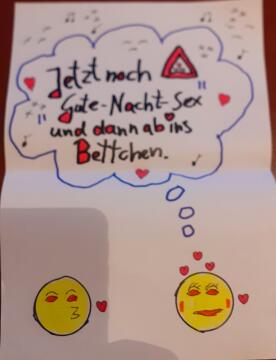 Jetzt noch
"Gute-Nacht-Sex"
und dann ab ins
Bettchen.